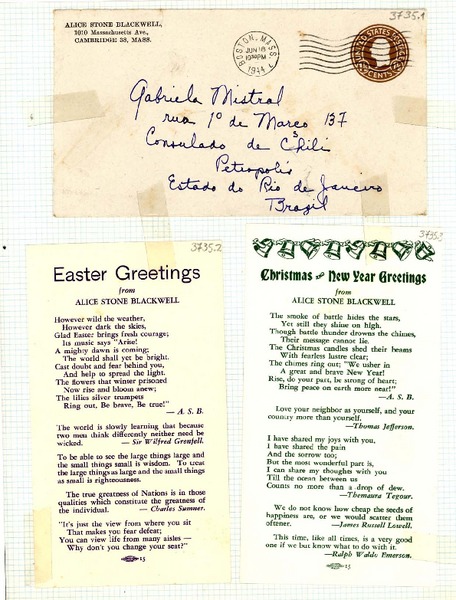 3735.1
ALICE STONE BLACKWELL,
1010 Massachusetts Ave.,
CAMBRIDGE 38, MASS.
BOSTON, MASS.
JUN 18
1944
UNITED STATES
CENTS
Gabriela Mistral
rua 1º de Março 137
Consulado de Chili
Petropolis
Estado do Rio de Janeiro
Brazil
3735.2
Easter Greetings
from
ALICE STONE BLACKWELL
However wild the weather,
However dark the skies,
Glad Easter brings fresh courage;
Its music says "Arise!
A mighty dawn is coming;
The world shall yet be bright.
Cast doubt and fear behind you,
And help to spread the light.
The flowers that winter prisoned
Now rise and bloom anew;
The lilies silver trumpets
Ring out, Be brave, Be true!"
— A. S. B.
The world is slowly learning that because
two men think differently neither need be
wicked. — Sir Wilfred Grenfell.
To be able to see the large things large and
the small things small is wisdom. To treat
the large things as large and the small things
as small is righteousness.
The true greatness of Nations is in those
qualities which constitute the greatness of
the individual. — Charles Sumner.
"It's just the view from where you sit
That makes you fear defeat;
You can view life from many aisles —
Why don't you change your seat?"
15
3735.3
Christmas and New Year Greetings
from
ALICE STONE BLACKWELL
The smoke of battle hides the stars,
Yet still they shine on high.
Though battle thunder drowns the chimes,
Their message cannot lie.
The Christmas candles shed their beams
With fearless lustre clear;
The chimes ring out; "We usher in
A great and brave New Year!
Rise, do your part, be strong of heart;
Bring peace on earth more near!"
—A. S. B.
Love your neighbor as yourself, and your
country more than yourself.
—Thomas Jefferson.
I have shared my joys with you,
I have shared the pain
And the sorrow too;
But the most wonderful part is,
I can share my thoughts with you
Till the ocean between us
Counts no more than a drop of dew.
—Themaura Tegour.
We do not know how cheap the seeds of
happiness are, or we would scatter them
oftener. —James Russell Lowell.
This time, like all times, is a very good
one if we but know what to do with it.
—Ralph Waldo Emerson.
15